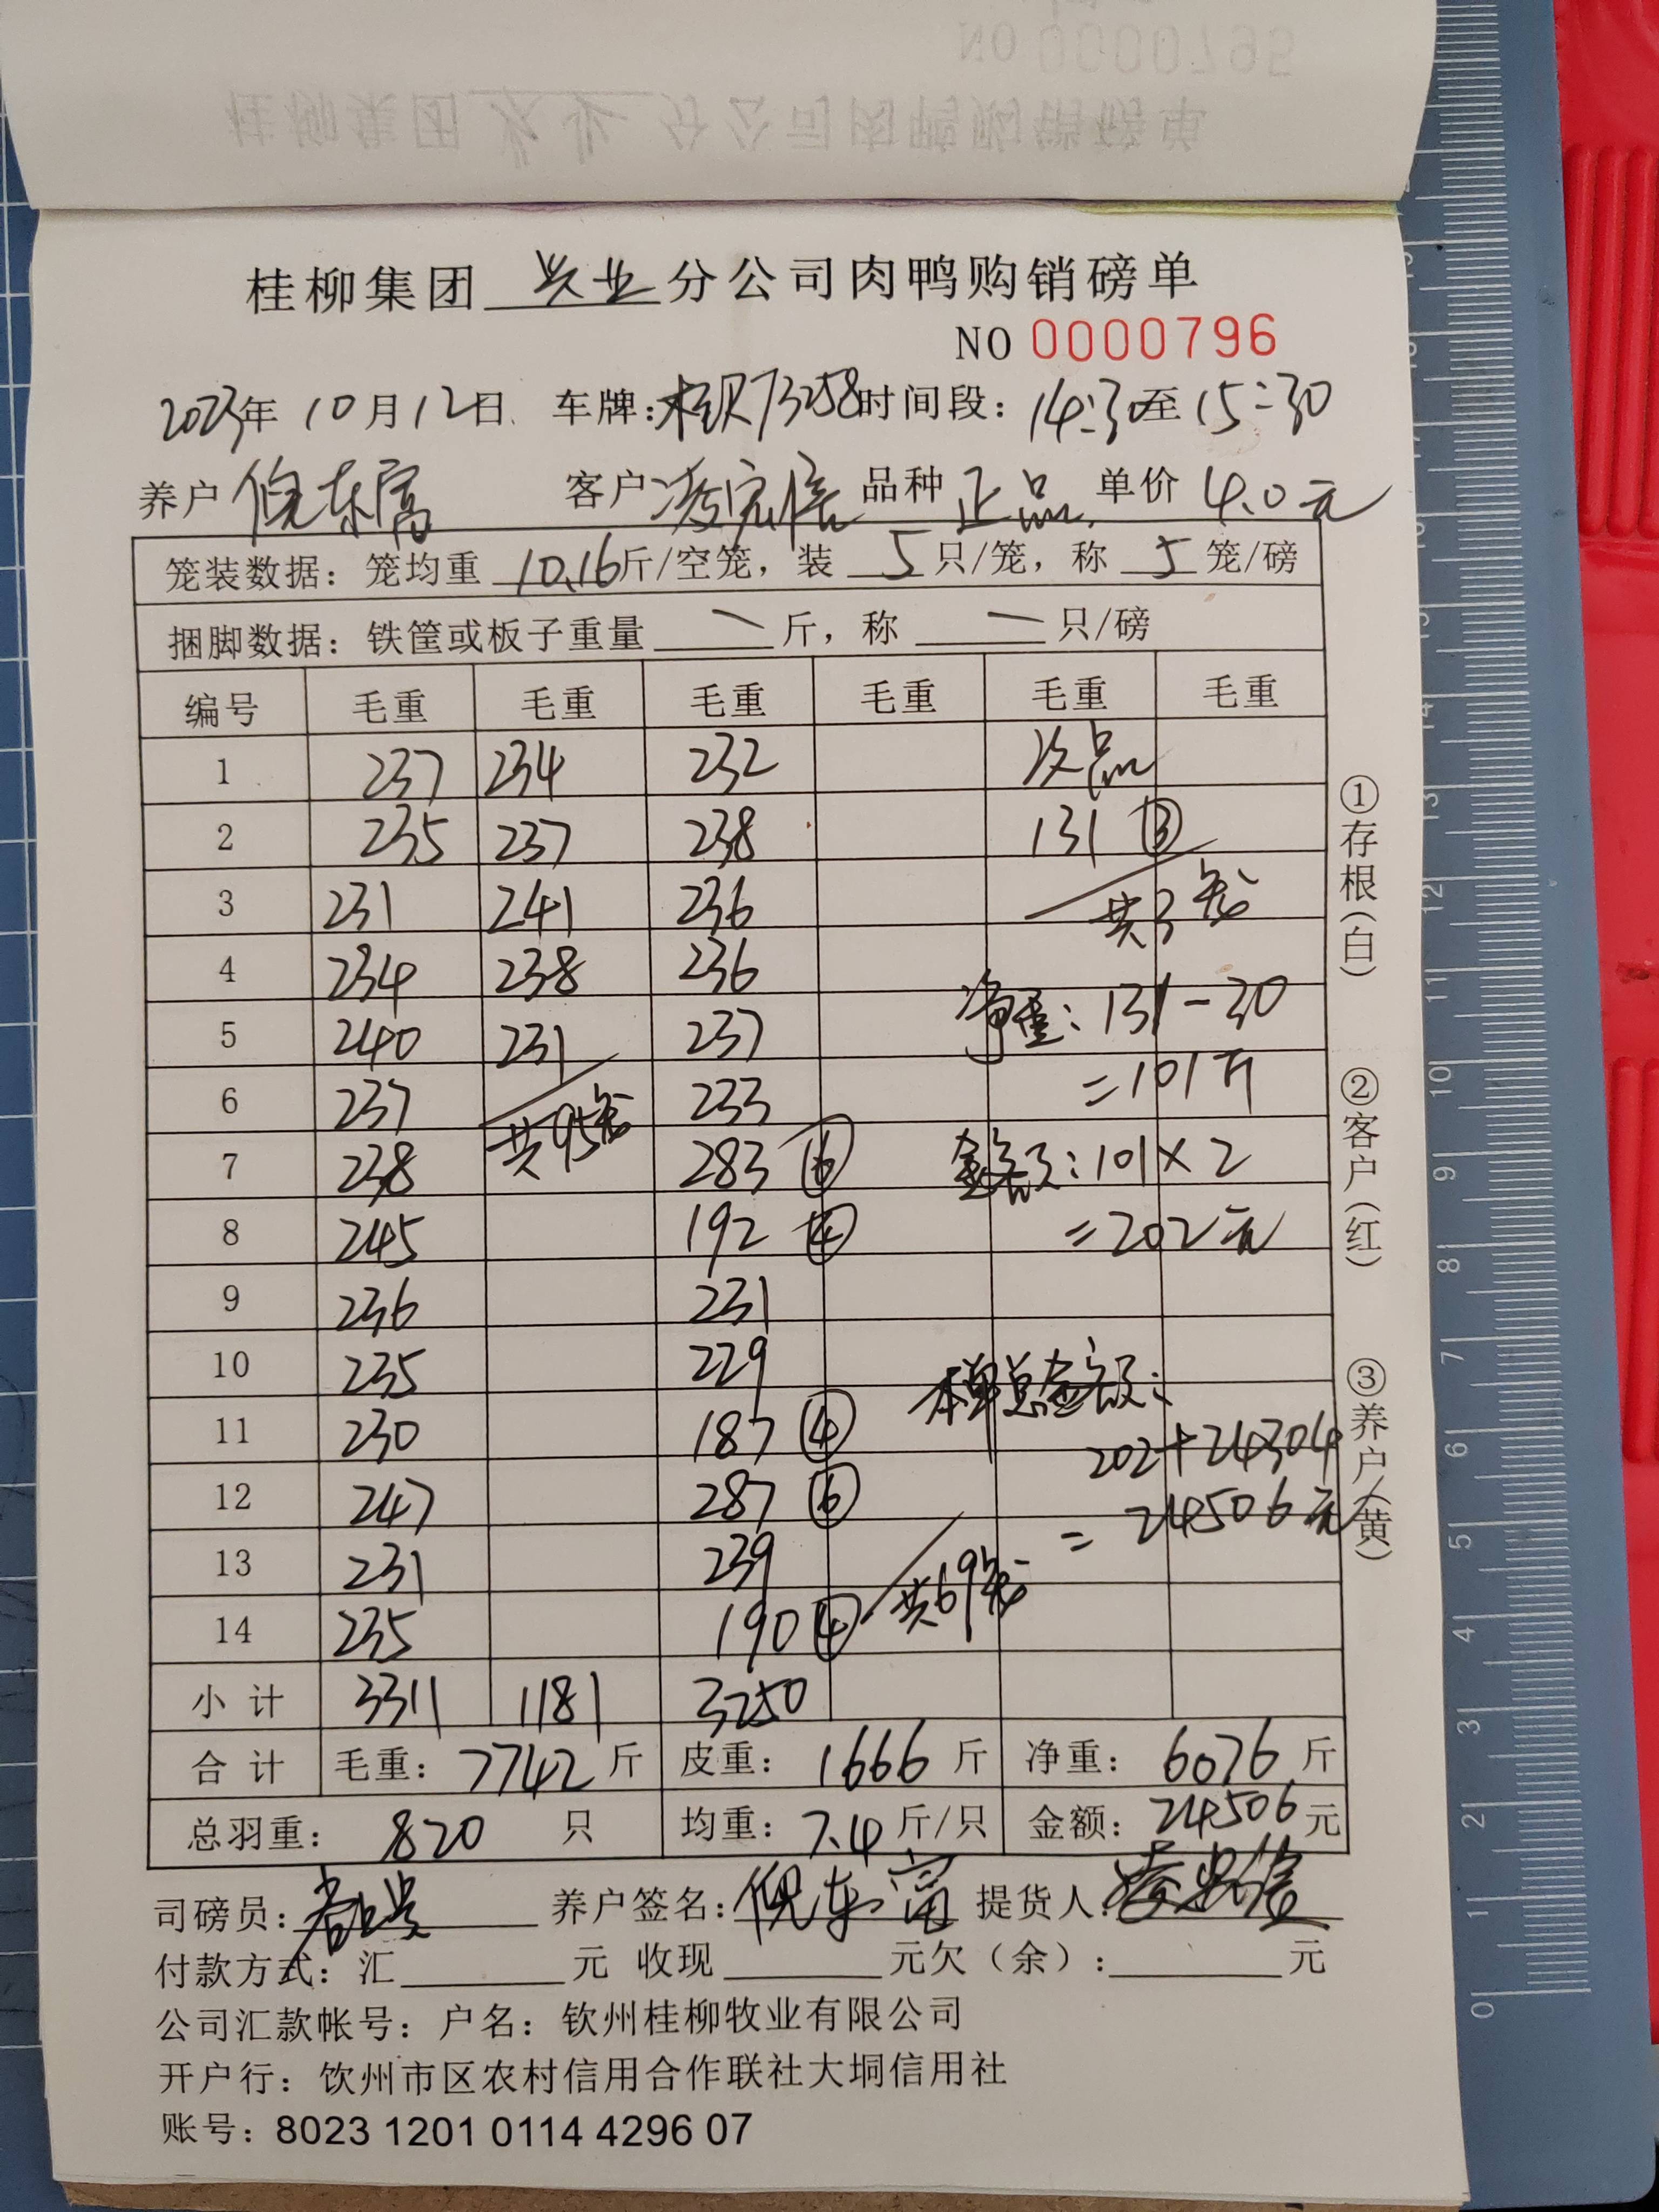 桂柳集团 兴业 分公司肉鸭购销磅单
NO 0000796
2023年 10月 12日 车牌:桂R73258 时间段: 14:30至 15:30
养户 倪东富 客户 凌宏信 品种 正品 单价 4.0元
笼装数据: 笼均重 10.16斤/空笼, 装 5 只/笼, 称 5 笼/磅
捆脚数据: 铁筐或板子重量 — 斤, 称 — 只/磅
编号 毛重 毛重 毛重 毛重 毛重 毛重
1 237 234 232 次品
2 235 237 238 131 ③
3 231 241 236 共3笼
4 234 238 236 净重: 131-30
5 240 231 237 =101斤
6 237 共95笼 233
7 238 283 ⑥ 金额: 101×2
8 245 192 ④ =202元
9 236 231
10 235 229 本单总金额:
11 230 187 ④ 202+24304
12 247 287 ⑥ = 24506元
13 231 239 共69笼
14 235 190 ④
小计 3311 1181 3250
合计 毛重: 7742 斤 皮重: 1666 斤 净重: 6076 斤
总羽重: 820 只 均重: 7.4 斤/只 金额: 24506元
司磅员: 养户签名: 倪东富 提货人:
付款方式: 汇 元 收现 元欠(余): 元
公司汇款帐号: 户名: 钦州桂柳牧业有限公司
开户行: 钦州市区农村信用合作联社大垌信用社
账号: 8023 1201 0114 4296 07
①存根(白) ②客户(红) ③养户(黄)